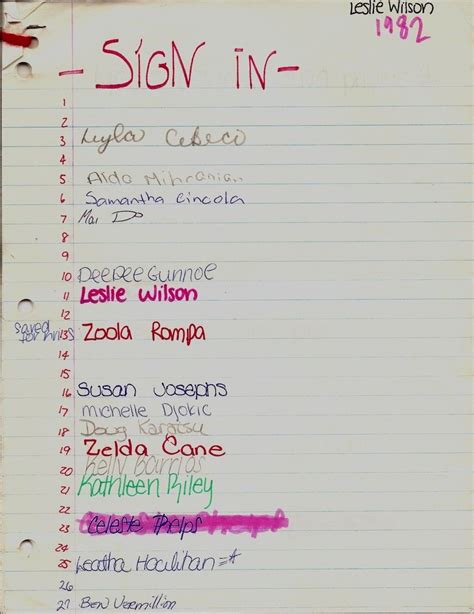 Leslie Wilson
1982
- SIGN IN -
1
2
3 Leyla Cebeci
4
5 Aida Mihranian
6 Samantha Cincola
7 Mai Do
8
9
10 DeeDee Gunnoe
11 Leslie Wilson
12
saved for hrs 13 Zoola Rompa
14
15
16 Susan Josephs
17 Michelle Djokic
18 Doug
19 Zelda Cane
20 Kelly Barrios
21 Kathleen Riley
22
23 Celeste Phelps
24
25 Leatha Houlihan
26
27 Ben Vermillion